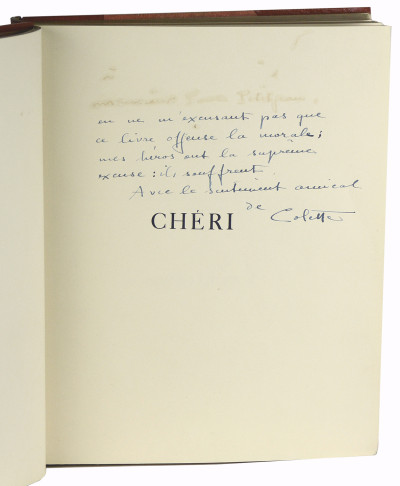 en ne m'excusant pas que
ce livre offense la morale ;
mes héros ont la suprême
excuse : ils souffrent.
Avec le sentiment amical
de Colette
CHÉRI